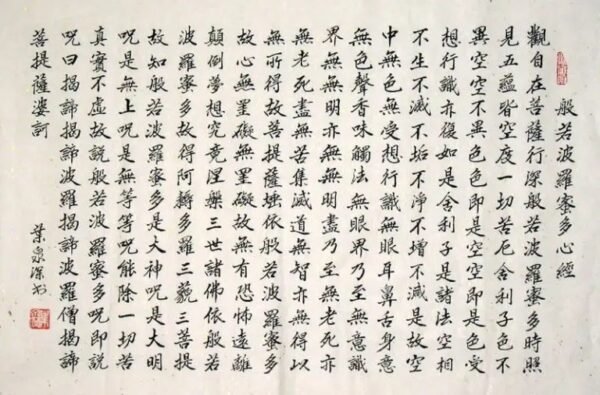 般若波羅蜜多心經
觀自在菩薩行深般若波羅蜜多時照
見五蘊皆空度一切苦厄舍利子色不
異空空不異色色即是空空即是色受
想行識亦復如是舍利子是諸法空相
不生不滅不垢不淨不增不減是故空
中無色無受想行識無眼耳鼻舌身意
無色聲香味觸法無眼界乃至無意識
界無無明亦無無明盡乃至無老死亦
無老死盡無苦集滅道無智亦無得以
無所得故菩提薩埵依般若波羅蜜多
故心無罣礙無罣礙故無有恐怖遠離
顛倒夢想究竟涅槃三世諸佛依般若
波羅蜜多故得阿耨多羅三藐三菩提
故知般若波羅蜜多是大神呪是大明
呪是無上呪是無等等呪能除一切苦
真實不虛故說般若波羅蜜多呪即說
呪曰揭諦揭諦波羅揭諦波羅僧揭諦
菩提薩婆訶
葉泉深